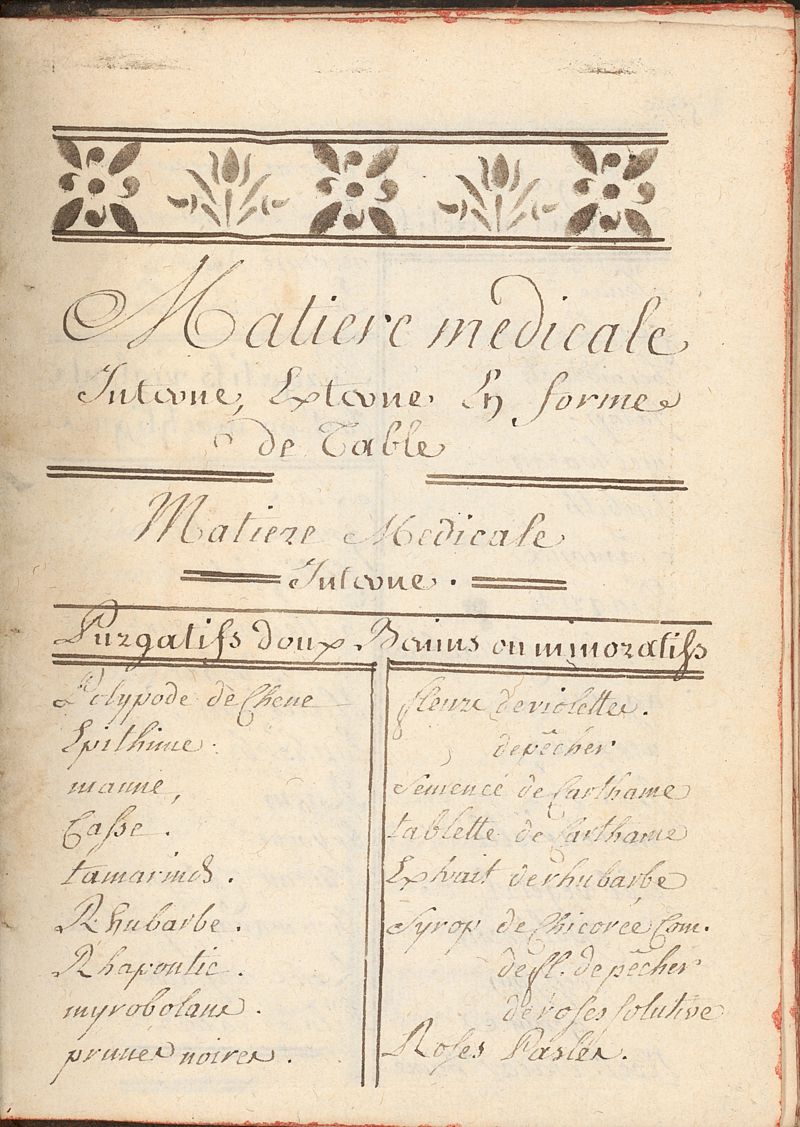 Matiere medicale
Interne, Externe En forme
de Table
Matiere Medicale
Interne.
Purgatifs doux Benins ou minoratifs
Polypode de Chene
Epithime.
manne,
Casse.
tamarinds.
Rhubarbe.
Rhapontic.
myrobolans.
prunes noires.
fleurs de violettes.
de pêcher
Semence de Carthame
tablette de Carthame
Extrait de rhubarbe
Syrop de Chicorée Com.
de fl. de pêcher
de roses solutive
Roses Pasles.